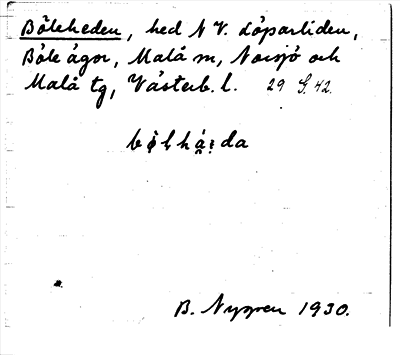 Böleheden, hed N V. Löparliden,
Böle ägor, Malå sn, Norsjö och
Malå tg, Västerb. l. 29 S. 42.
B. Nygren 1930.